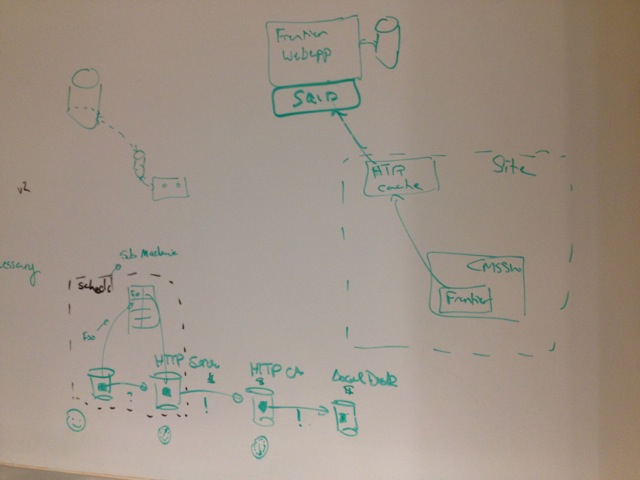 Frontier
Webapp
SQUID
HTTP
cache
Site
CMSSW
Frontier
v2
Sub Machine
Schedd
Foo
Foo
HTTP Serv
HTTP Ca
Local Disk
$
$
$
?
!
!